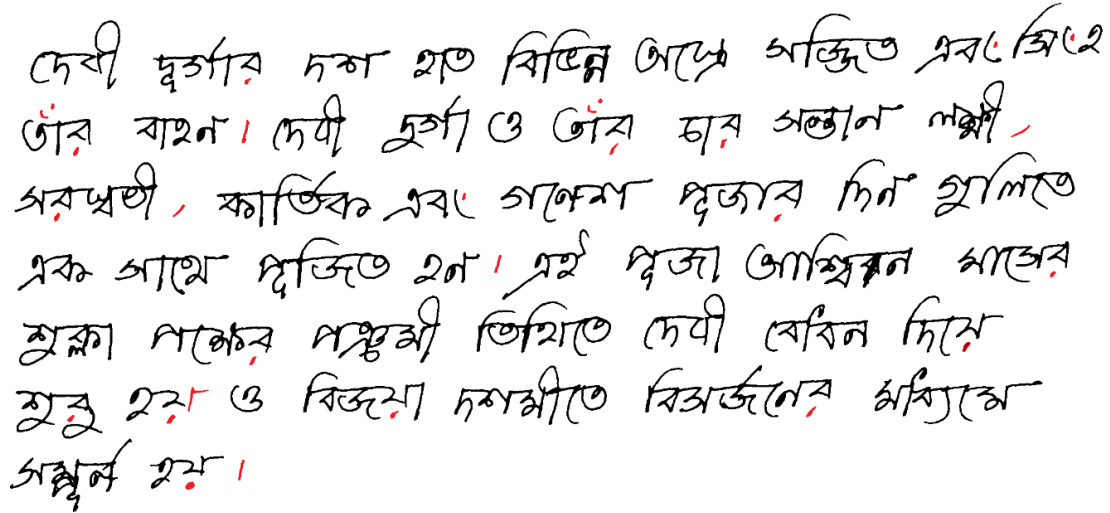 দেবী দূর্গার দশ হাত বিভিন্ন অস্ত্রে সজ্জিত এবং সিংহ
তাঁর বাহন। দেবী দুর্গা ও তাঁর চার সন্তান লক্ষ্মী,
সরস্বতী, কার্তিক এবং গণেশ পূজার দিন গুলিতে
এক সাথে পূজিত হন। এই পূজা আশ্বিন মাসের
শুক্লা পক্ষের পঞ্চমী তিথিতে দেবী বোধন দিয়ে
শুরু হয় ও বিজয়া দশমীতে বিসর্জনের মাধ্যমে
সম্পূর্ন হয়।